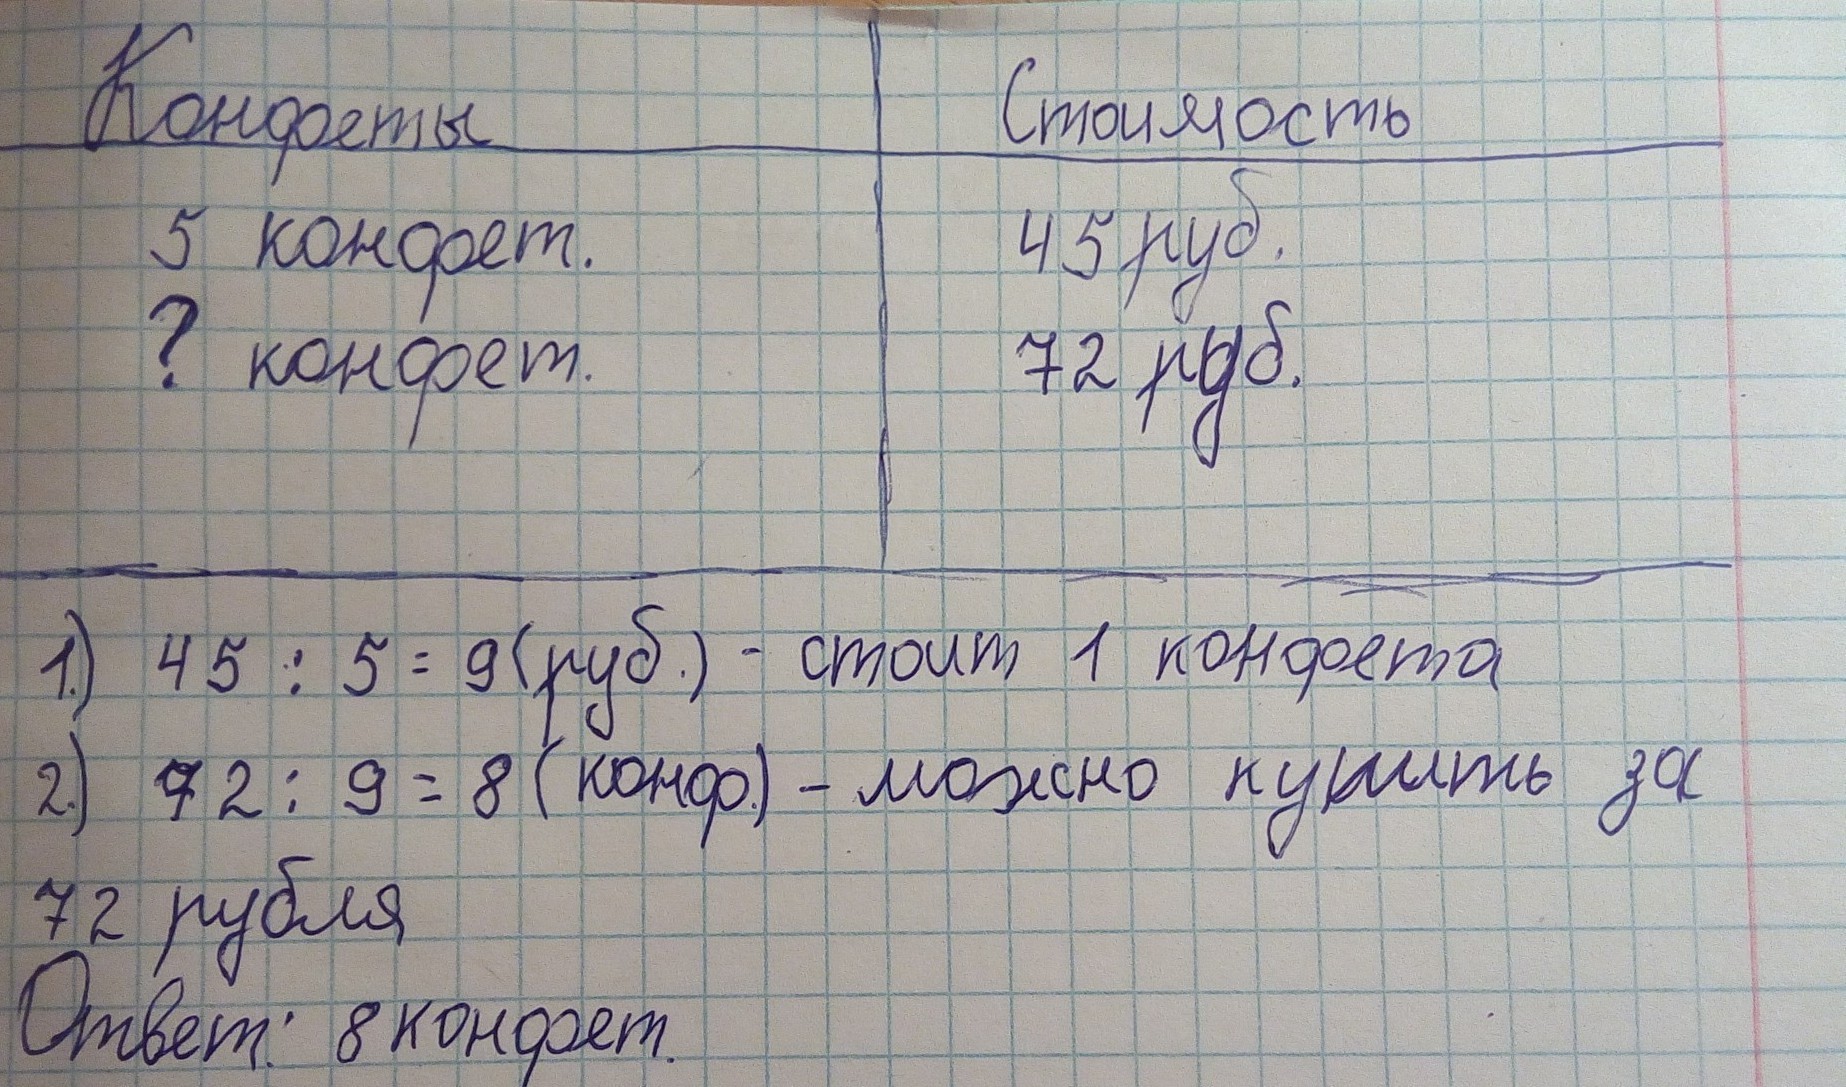 Конфеты Стоимость
5 конфет. 45 руб.
? конфет. 72 руб.
1.) 45 : 5 = 9 (руб.) - стоит 1 конфета
2.) 72 : 9 = 8 (конф.) - можно купить за
72 рубля
Ответ: 8 конфет.